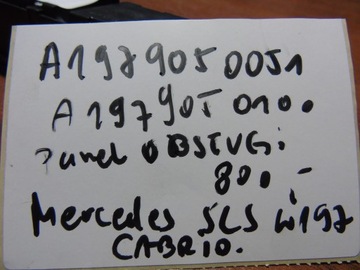 A1979050051
A1979050100
panel OBSŁUGI
800,-
Mercedes SLS W197
CABRIO.